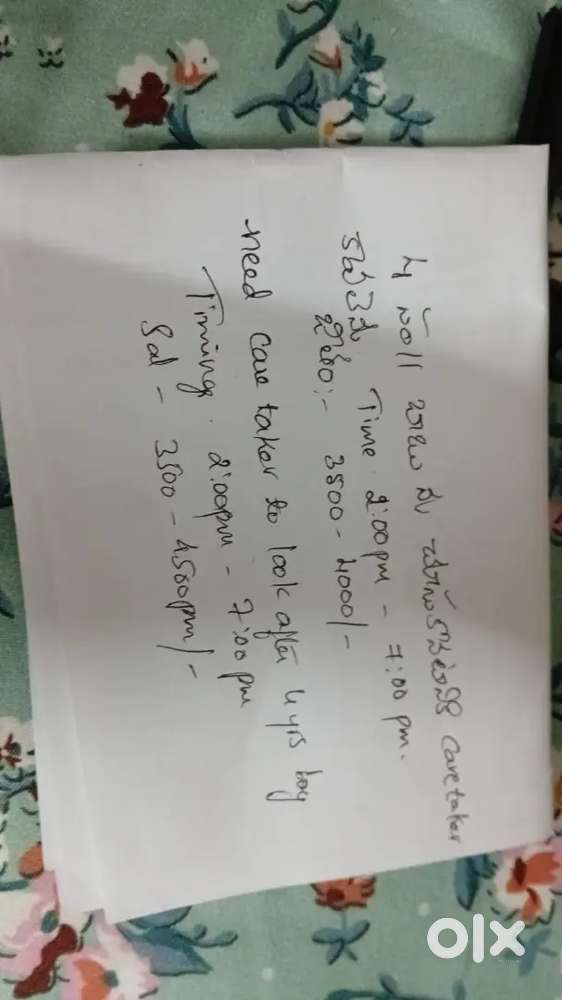 4 సం|| బాబు ను caretaker
కావలెను Time 2:00pm - 7:00 pm.
జీతం:- 3500 - 4000/-
need care taker to look after 4 yrs boy
Timings. 2:00pm - 7:00 pm
Sal - 3500 - 4500pm/-
olx